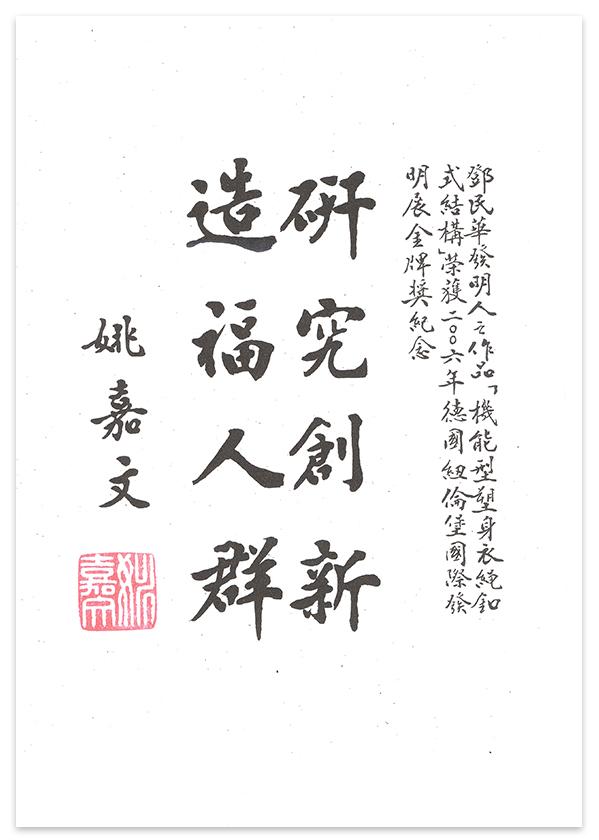 鄧民華發明人之作品「機能型塑身衣繩釦
式結構」榮獲二００六年德國紐倫堡國際發
明展金牌獎紀念
研究創新
造福人群
姚嘉文
姚嘉文